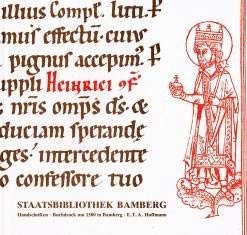 illius Compl. luti. P
amur effectū. cuius
pignus accepim. P
uppli Heinrici
nr̄is omp̄s ds. &
duciam sperande
ges intercedente
o confessore tuo
STAATSBIBLIOTHEK BAMBERG
Handschriften - Buchdruck um 1500 in Bamberg - E. T. A. Hoffmann